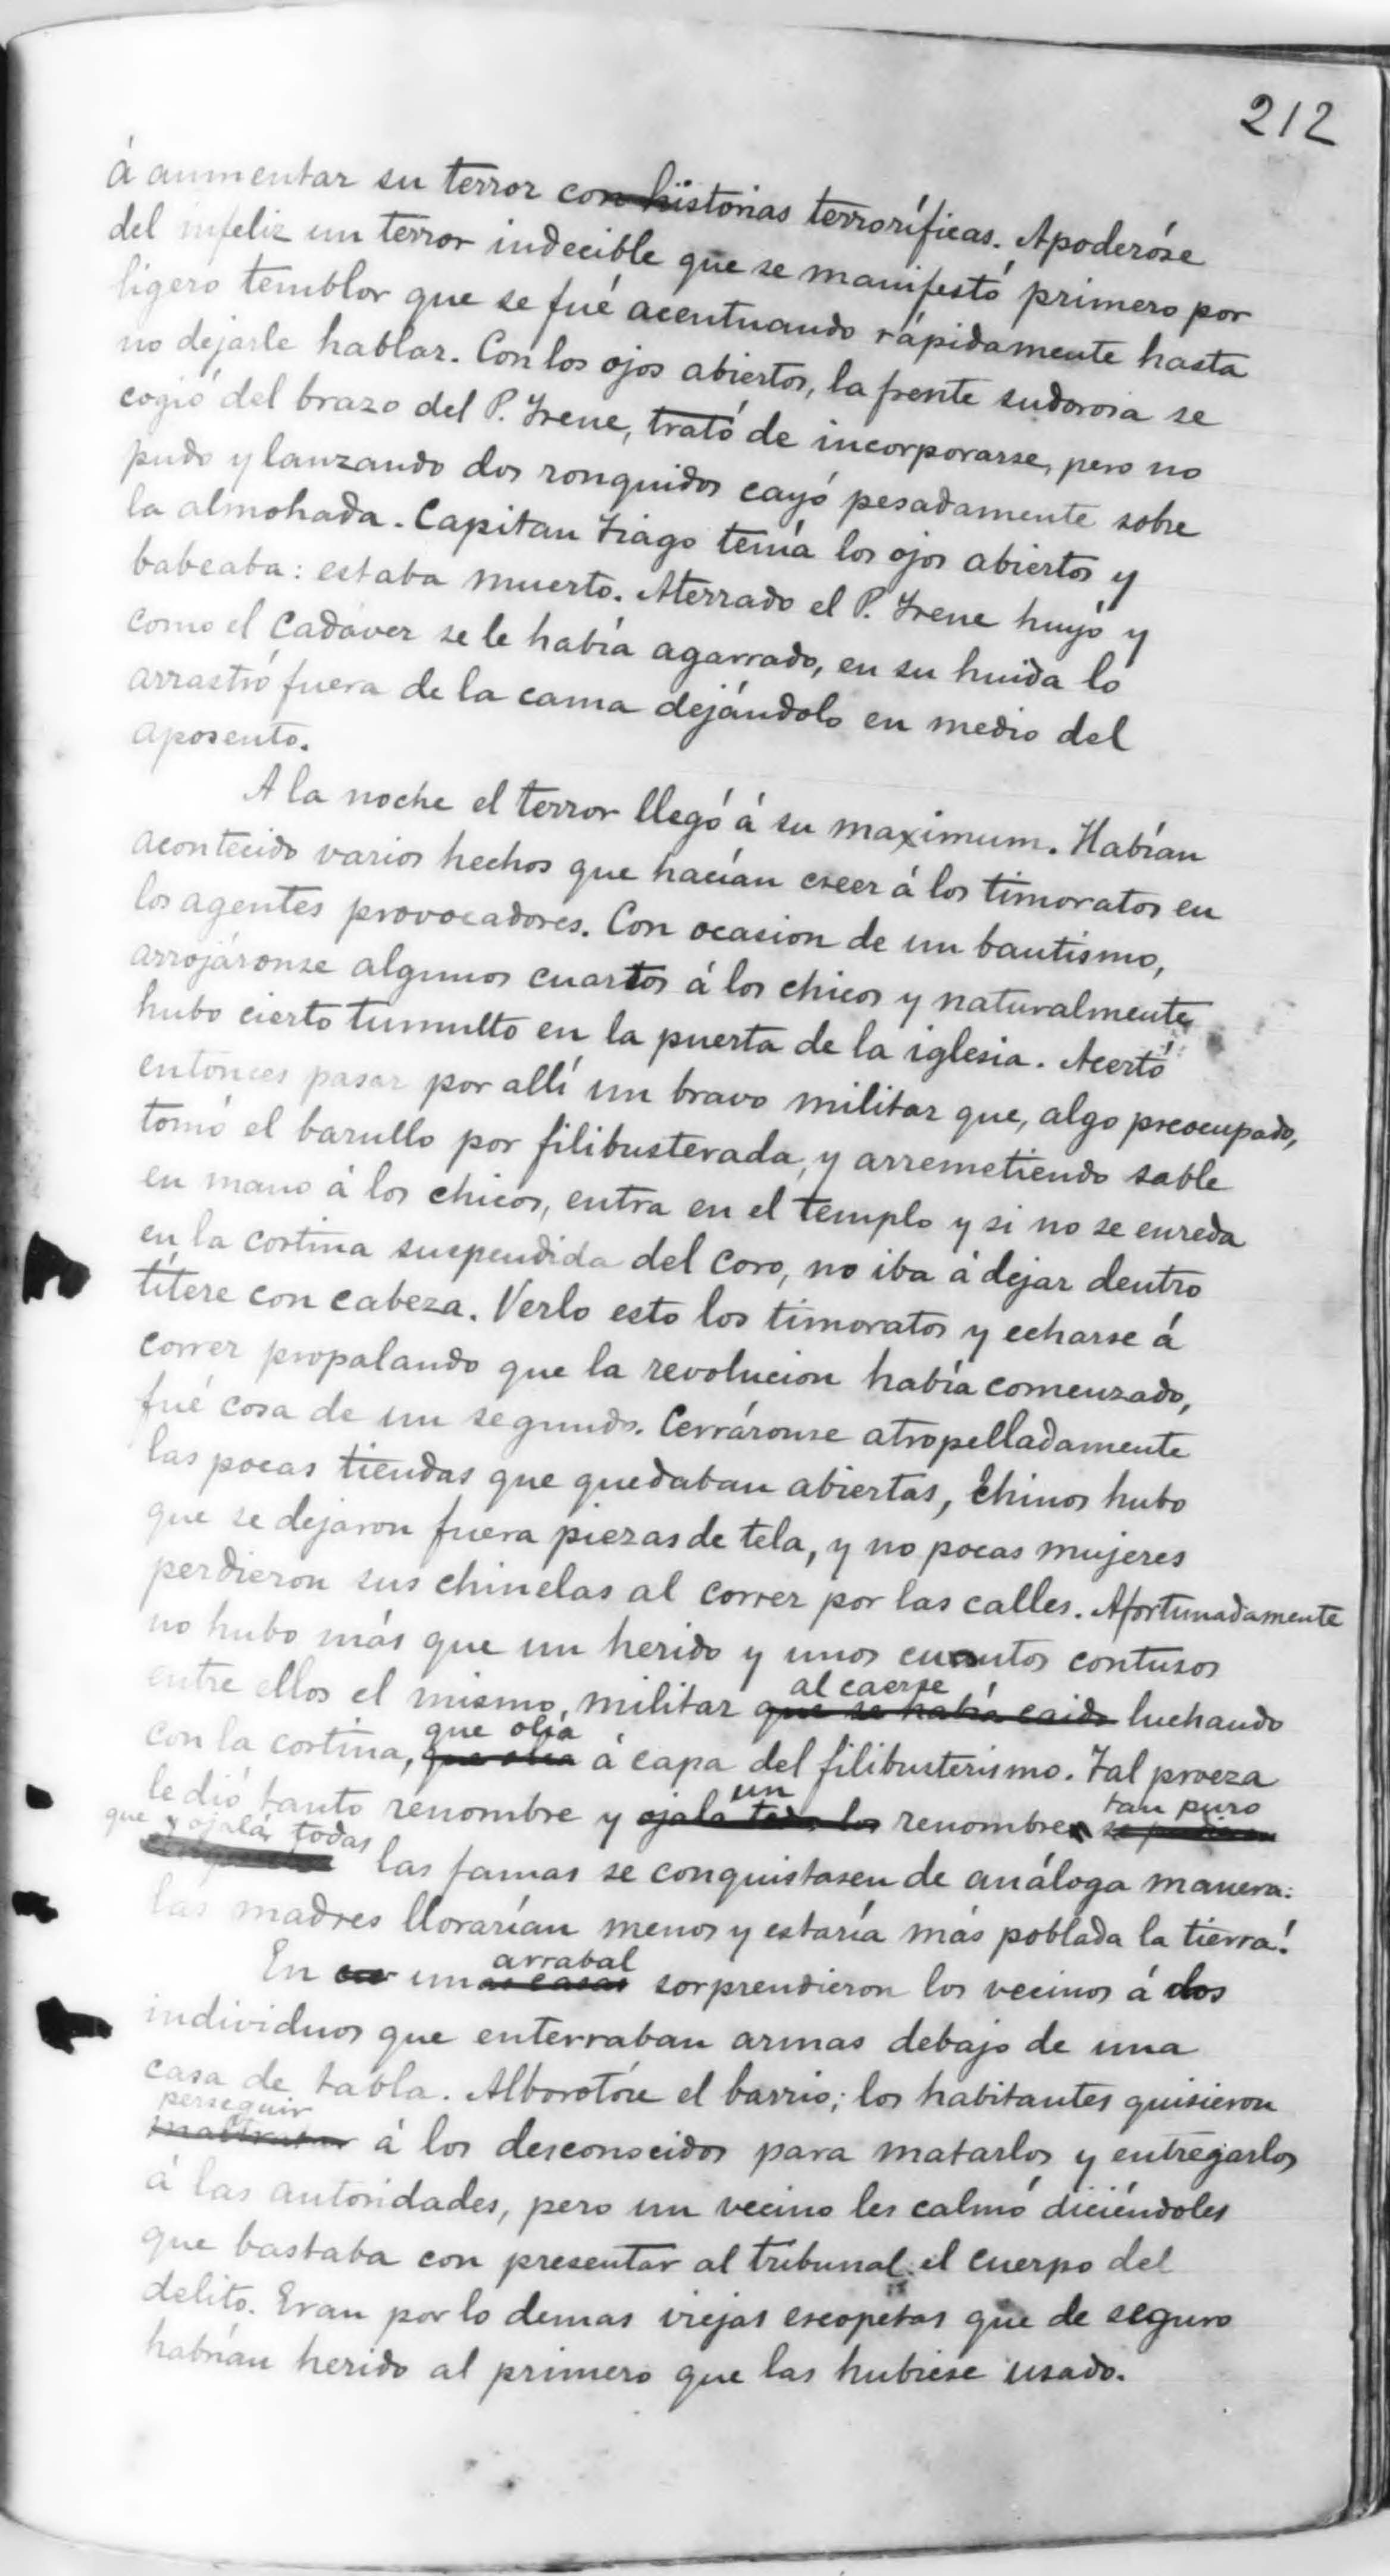 212
á aumentar su terror con historias terroríficas. Apoderóse
del infeliz un terror indecible que se manifestó primero por
ligero temblor que se fué acentuando rápidamente hasta
no dejarle hablar. Con los ojos abiertos, la frente sudorosa se
cogió del brazo del P. Irene, trató de incorporarse, pero no
pudo y lanzando dos ronquidos cayó pesadamente sobre
la almohada. Capitan Tiago tenía los ojos abiertos y
babeaba: estaba muerto. Aterrado el P. Irene huyó y
como el cadáver se le había agarrado, en su huida lo
arrastró fuera de la cama dejándolo en medio del
aposento.
A la noche el terror llegó á su maximum. Habían
acontecido varios hechos que hacían creer á los timoratos en
los agentes provocadores. Con ocasion de un bautismo,
arrojáronse algunos cuartos á los chicos y naturalmente
hubo cierto tumulto en la puerta de la iglesia. Acertó
entonces pasar por allí un bravo militar que, algo preocupado,
tomó el barullo por filibusterada, y arremetiendo sable
en mano á los chicos, entra en el templo y si no se enreda
en la cortina suspendida del coro, no iba á dejar dentro
títere con cabeza. Verlo esto los timoratos y echarse á
correr propalando que la revolucion había comenzado,
fué cosa de un segundo. Cerráronse atropelladamente
las pocas tiendas que quedaban abiertas, Chinos hubo
que se dejaron fuera piezas de tela, y no pocas mujeres
perdieron sus chinelas al correr por las calles. Afortunadamente
no hubo más que un herido y unos cuantos contusos
al caerse
entre ellos el mismo militar que se había caido luchando
que olía
con la cortina, que olía á capa del filibusterismo. Tal proeza
un tan puro
le dió tanto renombre y ojala todos los renombres se pudiesen
que y ojalá todas
las famas se conquistasen de análoga manera:
las madres llorarían menos y estaría más poblada la tierra!
arrabal
En unas casas sorprendieron los vecinos á dos
individuos que enterraban armas debajo de una
casa de tabla. Alborotóse el barrio; los habitantes quisieron
perseguir
maltratar á los desconocidos para matarlos y entregarlos
á las autoridades, pero un vecino les calmó diciéndoles
que bastaba con presentar al tribunal el cuerpo del
delito. Eran por lo demas viejas escopetas que de seguro
habrían herido al primero que las hubiese usado.